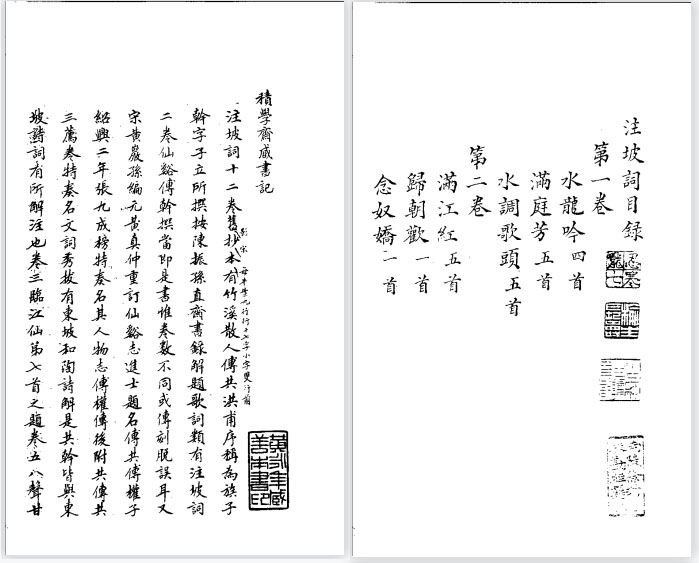 注坡詞目錄
第一卷
水龍吟四首
滿庭芳五首
水調歌頭五首
第二卷
滿江紅五首
歸朝歡一首
念奴嬌二首
積學齋藏書記
注坡詞十二卷舊抄本有竹溪散人傅共洪甫序稱為族子
影宋
每半葉九行行十七字小字雙行前
榦字子立所撰按陳振孫直齋書錄解題歌詞類有注坡詞
二卷仙谿傅榦撰當即是書惟卷數不同或傳刻脫誤耳又
宋黃巖孫編元黃真仲重訂仙谿志進士題名傅共傅權子
紹興二年張九成榜特奏名其人物志傅權傳後附共傳共
三薦奏特奏名文詞秀拔有東坡和陶詩解是共榦皆與東
坡詩詞有所解注也卷三臨江仙第七首之題卷五八聲甘
黃永年藏
善本書印